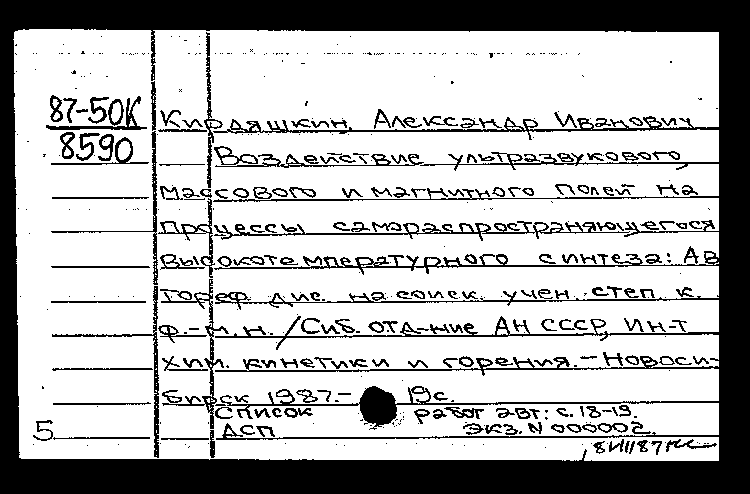 87-50К
8590
Кирдяшкин, Александр Иванович
Воздействие ультразвукового,
массового и магнитного полей на
процессы самораспространяющегося
высокотемпературного синтеза: Ав
тореф дис. на соиск. учен. степ к.
ф.-м.н. /Сиб. отд-ние АН СССР, Ин-т
хим. кинетики и горения.-Новоси-
бирск 1987.- 19с.
Список работ авт: с. 18-19.
ДСП Экз. N 000002.
5